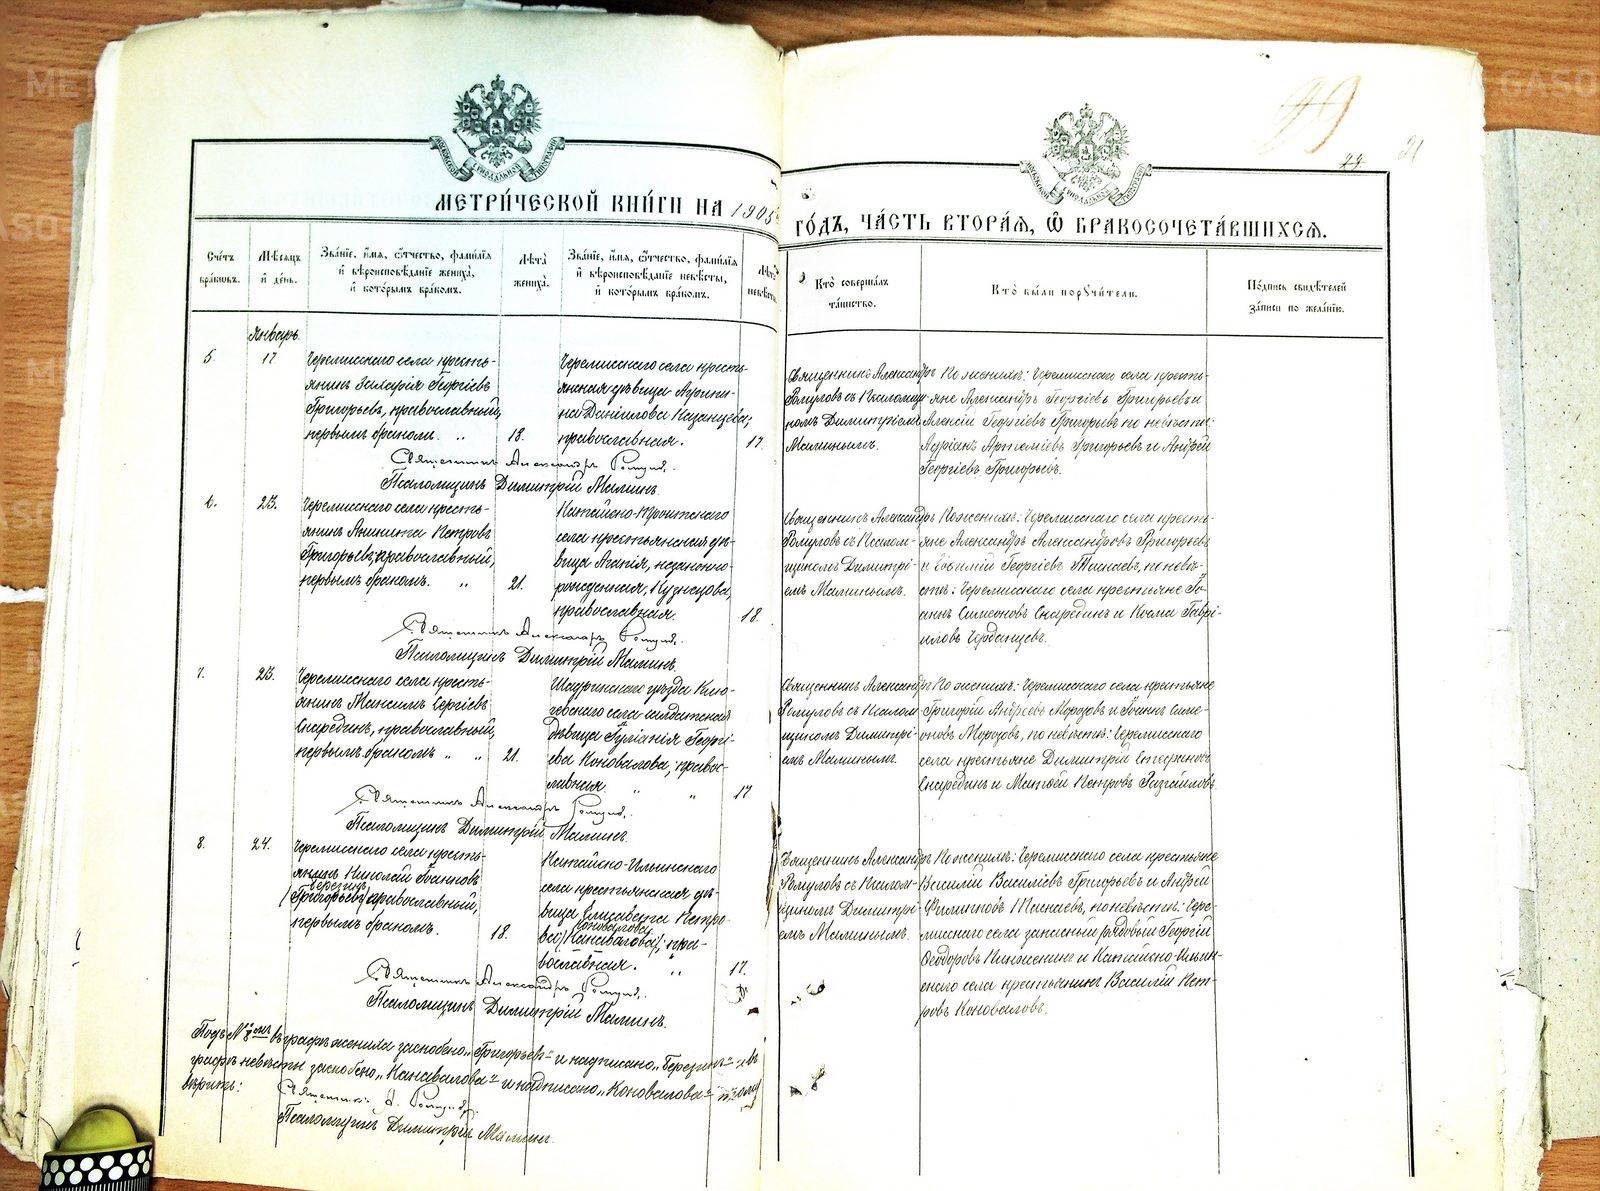 МЕТРИ́ЧЕСКОЙ КНИ́ГИ НА 1905
ГО́ДЪ, ЧА́СТЬ ВТОРА́Ѧ, Ѽ БРАКОСОЧЕТА́ВШИХСѦ.
29
21
Сче́тъ бра́ковъ.
Мѣ́сѧцъ и҆ де́нь.
Зва́нїе, и҆́мѧ, ѻ҆́тчество, фамилїѧ
и҆ вѣроисповѣ́данїе жениха̀,
и҆ кото́рымъ бра́комъ.
Лѣ́та̀ жениха̀.
Зва́нїе, и҆́мѧ, ѻ҆́тчество, фамилїѧ
и҆ вѣроисповѣ́данїе невѣ́сты,
и҆ кото́рымъ бра́комъ.
Лѣ́та̀ невѣ́сты
Кто̀ соверша́лъ
та́инство.
Кто̀ бы́ли порꙋчи́тели.
По́дпись свидѣ́телей
за́писи по жела́нїю.
Январь
5.
17
Черемисскаго села кресть-
янинъ Захарія Георгіевъ
Григорьевъ, православный,
первымъ бракомъ. „
18.
Черемисскаго села кресть-
янская дѣвица Агрипи-
на Даніилова Казанцева,
православная.
17.
Священникъ Александръ
Ромуловъ съ псаломщи
комъ Димитріемъ
Малинымъ.
По женихѣ: Черемисскаго села кресть-
яне Александръ Георгіевъ Григорьевъ и
Алексій Георгіевъ Григорьевъ по невѣстѣ:
Адріанъ Артеміевъ Григорьевъ и Андрей
Георгіевъ Григорьевъ.
Священникъ Александръ Ромуловъ.
Псаломщикъ Димитрій Малинъ.
6.
23.
Черемисскаго села кресть-
янинъ Аникита Петровъ
Григорьевъ, православный,
первымъ бракомъ. „
21.
Катайско-Троитскаго
села крестьянская дѣ-
вица Агапія, незаконно-
рожденная, Кузнецова,
православная.
18.
Священникъ Александръ
Ромуловъ съ псалом-
щикомъ Димитрі-
емъ Малинымъ.
По женихѣ: Черемисскаго села кресть-
яне Александръ Александровъ Григорьевъ
и Евѳимій Георгіевъ Манаевъ, по невѣ-
стѣ: Черемисскаго села крестьяне Іо-
аннъ Симеоновъ Снарединъ и Косма Гаврі-
иловъ Чердынцевъ.
Священникъ Александръ Ромуловъ.
Псаломщикъ Димитрій Малинъ.
7.
23.
Черемисскаго села кресть-
янинъ Максимъ Сергіевъ
Снарединъ, православный,
первымъ бракомъ „ „
21.
Шадринскаго уѣзда Клю-
чевскаго села солдатская
дѣвица Іуліанія Георгі-
ева Коновалова, правос-
лавная. „ „
17
Священникъ Александръ
Ромуловъ съ псалом
щикомъ Димитрі-
емъ Малинымъ.
По женихѣ: Черемисскаго села крестьяне
Григорій Андреевъ Морозовъ и Іоаннъ Симе-
оновъ Морозовъ, по невѣстѣ: Черемисскаго
села крестьяне Димитрій Стефановъ
Снарединъ и Матѳей Петровъ
Священникъ Александръ Ромуловъ.
Псаломщикъ Димитрій Малинъ.
8.
24.
Черемисскаго села кресть-
янинъ Николай Іоанновъ
Березинъ
(Григорьевъ) православный,
первымъ бракомъ.
18.
Катайско-Ильинскаго
села крестьянская дѣ-
вица Елисавета Петро-
Коновалова
ва (Канавалова), пра-
вославная. „
17.
Священникъ Александръ
Ромуловъ съ псалом-
щикомъ Димитрі-
емъ Малинымъ.
По женихѣ: Черемисскаго села крестьяне
Василій Василіевъ Григорьевъ и Андрей
Филипповъ Манаевъ, по невѣстѣ: Чере-
мисскаго села запасный рядовый Георгій
Ѳеодоровъ и Катайско-Ильин-
скаго села крестьянинъ Василій Пет-
ровъ Коноваловъ.
Священникъ Александръ Ромуловъ.
Псаломщикъ Димитрій Малинъ.
Подъ № 8ᵒᵐъ въ графѣ жениха заскоблено „Григорьевъ“ и надписано „Березинъ“ и въ
графѣ невѣсты заскоблено „Канавалова“ и надписано „Коновалова“ тому
вѣрить:
Священникъ А. Ромуловъ.
Псаломщикъ Димитрій Малинъ.